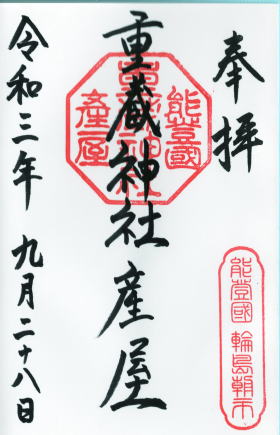 奉拝
能登國
重蔵神社
産屋
重蔵神社産屋
能登國 輪島朝市
令和三年 九月二十八日